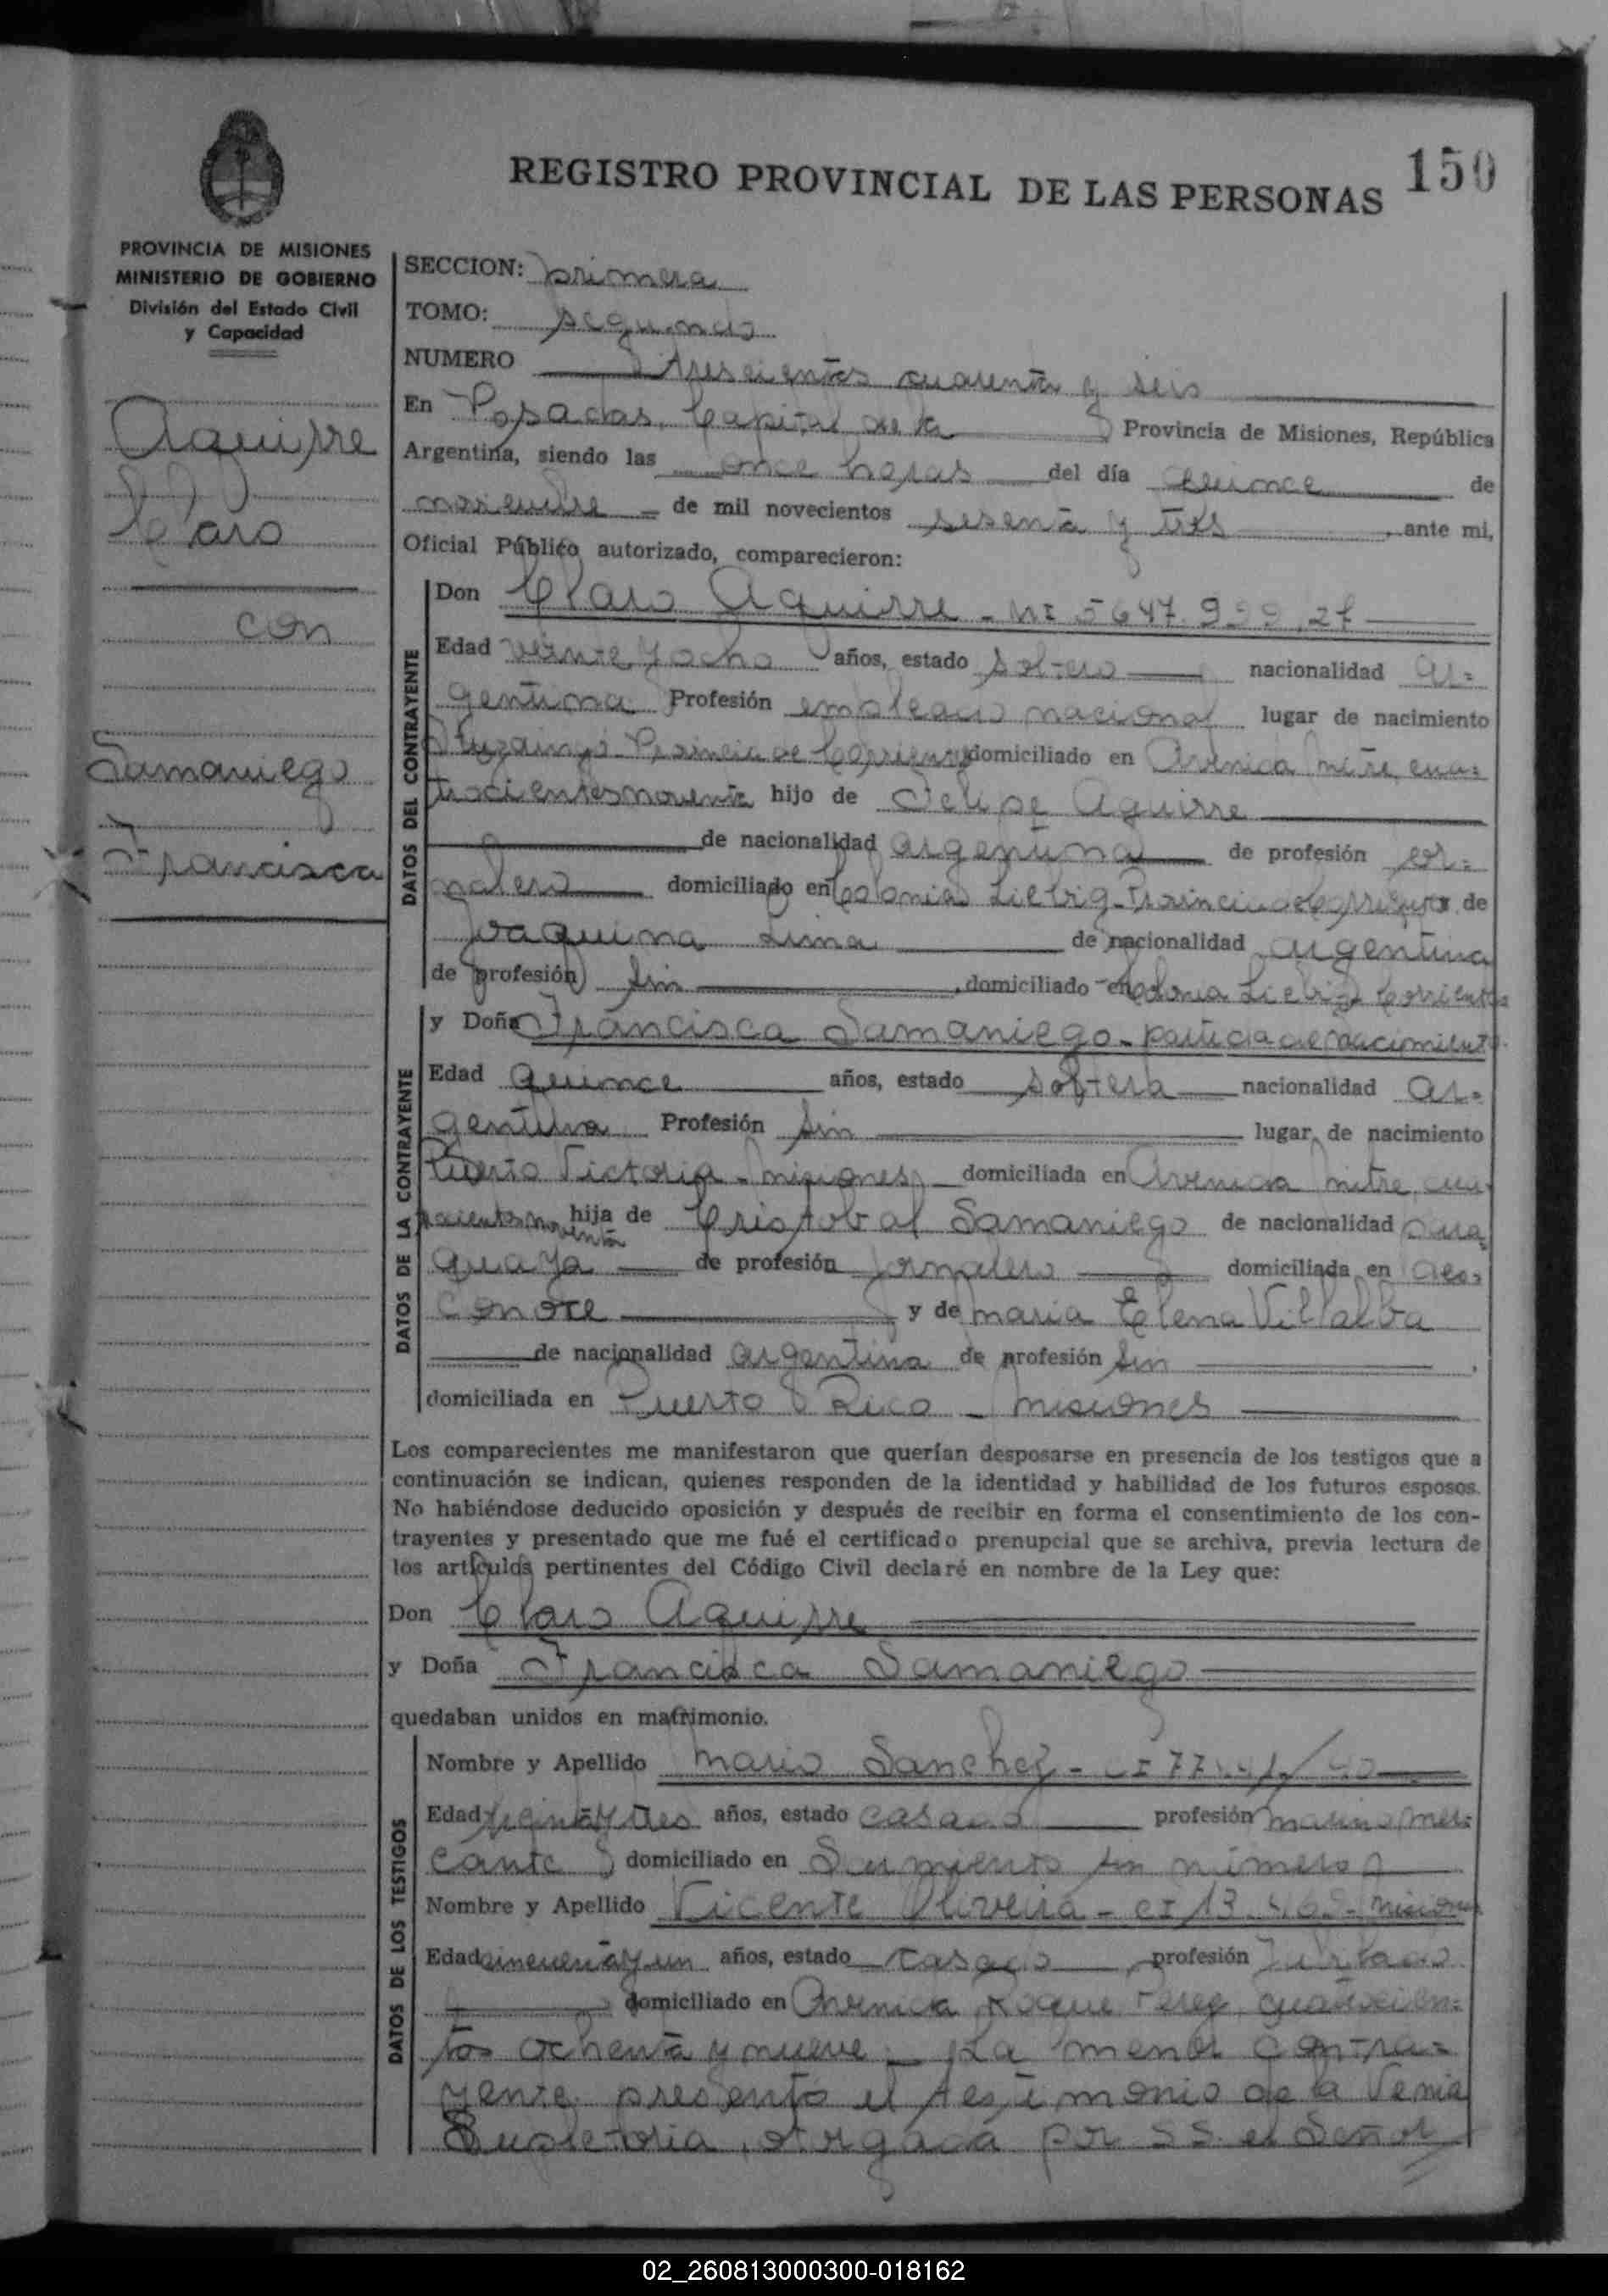 REGISTRO PROVINCIAL DE LAS PERSONAS 150
PROVINCIA DE MISIONES
MINISTERIO DE GOBIERNO
División del Estado Civil
y Capacidad
Aguirre
Claro
con
Samaniego
Francisca
SECCION: primera
TOMO: segundo
NUMERO trescientos cuarenta y seis
En Posadas, Capital de la Provincia de Misiones, República
Argentina, siendo las once horas del día quince de
noviembre de mil novecientos sesenta y tres, ante mi,
Oficial Público autorizado, comparecieron:
DATOS DEL CONTRAYENTE
Don Claro Aguirre - MI 5647.999
Edad veinte y ocho años, estado soltero nacionalidad ar=
gentina Profesión empleado nacional lugar de nacimiento
Ituzaingó - Provincia de Corrientes domiciliado en Avenida Mitre, cua=
trocientos noventa hijo de Felipe Aguirre
de nacionalidad argentina de profesión jor=
nalero domiciliado en Colonia Liebig - Provincia de Corrientes y de
Joaquina Lima de nacionalidad argentina
de profesión sin, domiciliado en Colonia Liebig Corrientes
DATOS DE LA CONTRAYENTE
y Doña Francisca Samaniego - partida de nacimiento
Edad quince años, estado soltera nacionalidad ar=
gentina Profesión sin lugar de nacimiento
Puerto Victoria - Misiones domiciliada en Avenida Mitre, cua=
trocientos noventa hija de Cristobal Samaniego de nacionalidad para=
guaya de profesión jornalero domiciliada en des=
conoce y de Maria Elena Villalba
de nacionalidad argentina de profesión sin,
domiciliada en Puerto Rico - Misiones
Los comparecientes me manifestaron que querían desposarse en presencia de los testigos que a
continuación se indican, quienes responden de la identidad y habilidad de los futuros esposos.
No habiéndose deducido oposición y después de recibir en forma el consentimiento de los con-
trayentes y presentado que me fué el certificado prenupcial que se archiva, previa lectura de
los artículos pertinentes del Código Civil declaré en nombre de la Ley que:
Don Claro Aguirre
y Doña Francisca Samaniego
quedaban unidos en matrimonio.
DATOS DE LOS TESTIGOS
Nombre y Apellido Mario Sanchez - CI
Edad treinta y tres años, estado casado profesión marino mer=
cante domiciliado en Sarmiento sin número
Nombre y Apellido Vicente Oliveira - CI 13.469 - Misiones
Edad cincuenta y un años, estado casado, profesión Jubilado
domiciliado en Avenida Roque Perez cuatrocien=
tos ochenta y nueve - La menor contra=
yente presentó el testimonio de la Venia
Supletoria, otorgada por S.S. el Señor
02_260813000300-018162